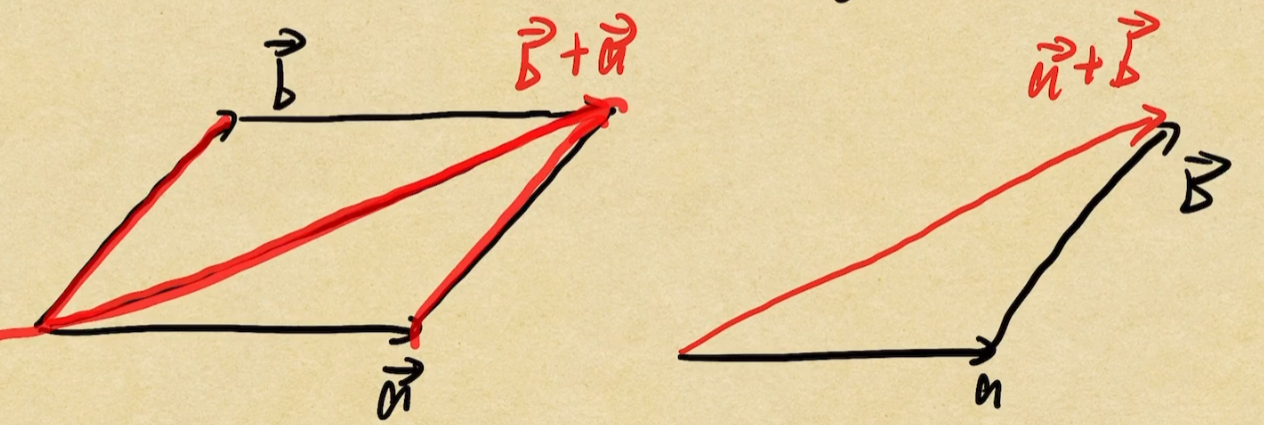 b⃗
b⃗+a⃗
a⃗
a⃗+b⃗
B⃗
a